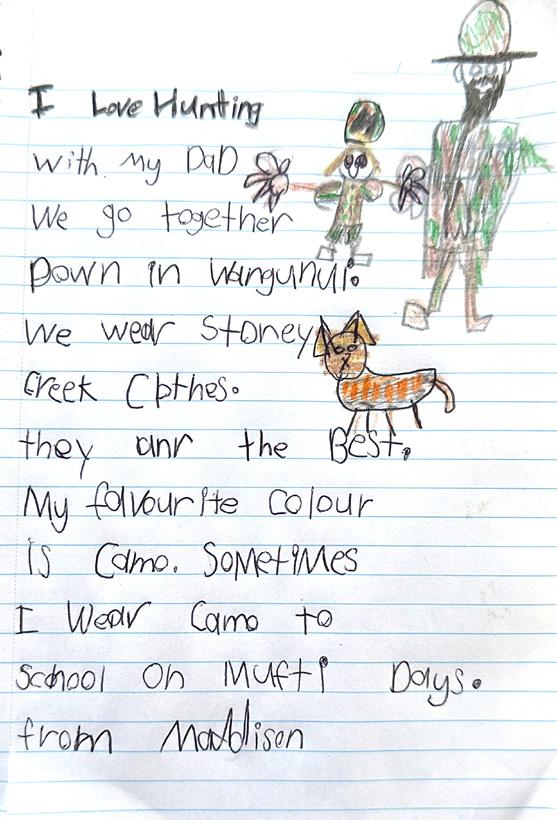 I Love Hunting
with my DaD
We go together
Down in Wangunui.
we wear Stoney
Creek Clothes.
they anr the Best.
My favourite Colour
is Camo. SOMetiMes
I Wear Camo to
school on Mufti Days.
from Maddison